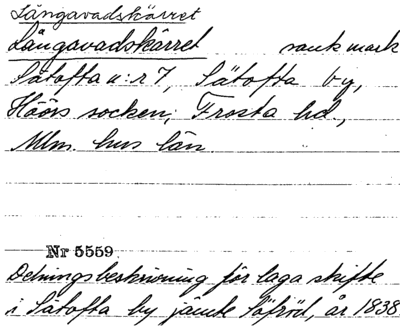 Långavadskärret
Långavadskärret sank mark
Sätofta n:r 7, Sätofta by,
Höörs socken, Frosta hd.,
Mlm. hus län.
Nr 5559
Delningsbeskrivning för laga skifte
i Sätofta by jämte Söfröd, år 1838